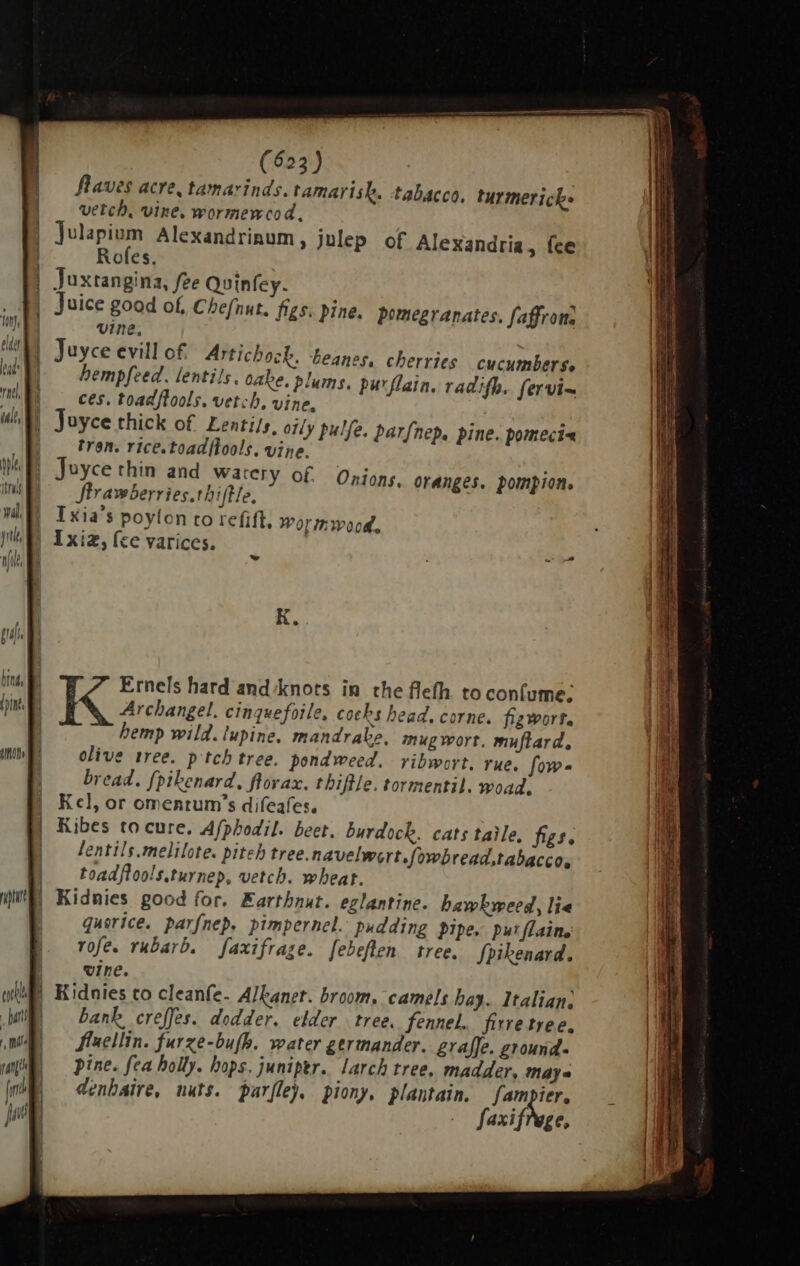 (623)
ſtaves acre, tamarinds. tamarisk. tabacco. turmerick.
vetch, vine. wormewood.
Julapium Alexandrinum, julep of Alexandria, ſee
Roſes.
Juxtangina, ſee Quinſey.
Juice good of, Cheſnut. figs. pine. pomegranates. ſaffron.
vine.
Juyce evill of. Artichock. beanes. cherries cucumbers.
hempſeed. lentils. oake. plums. purſlain. radiſh. ſervi-
ces. toadſtools. vetch, vine.
Juyce thick of Lentils, oily pulſe. parſnep. pine. pomeci-
tron. rice. toadſtools. vine.
Juyce thin and watery of. Onions. oranges. pompion.
ſtrawberries. thiſtle.
Ixia's poyſon to reſiſt, wormwood.
Ixiæ, ſee varices.
K.
KErnels hard and knots in the fleſh to conſume.
Archangel. cinquefoile, cocks head. corne. figwort.
hemp wild. lupine. mandrake. mugwort. muſtard.
olive tree. pitch tree. pondweed. ribwort. rue. ſow-
bread. ſpikenard. ſtorax. thiſtle. tormentil. woad.
Kel, or omentum's diſeaſes.
Kibes to cure. Aſphodil. beet. burdock. cats taile, figs.
lentils. melilote. pitch tree. navelwort. ſowbread. tabacco.
toadſtools. turnep, vetch. wheat.
Kidnies good for. Earthnut. eglantine. hawkweed, lie
quorice. parſnep. pimpernel. pudding pipe. purſlain.
roſe. rubarb. ſaxifrage. ſebeſten tree. ſpikenard.
vine.
Kidnies to cleanſe. Alkanet. broom. camels hay. Italian.
bank creſſes. dodder. elder tree. fennel. firre tree.
fluellin. furze-buſh. water germander. graſſe. ground-
pine. ſea holly. hops. juniper. larch tree. madder, maya
denhaire, nuts. parſley. piony. plantain. ſampier.
ſaxifrage,